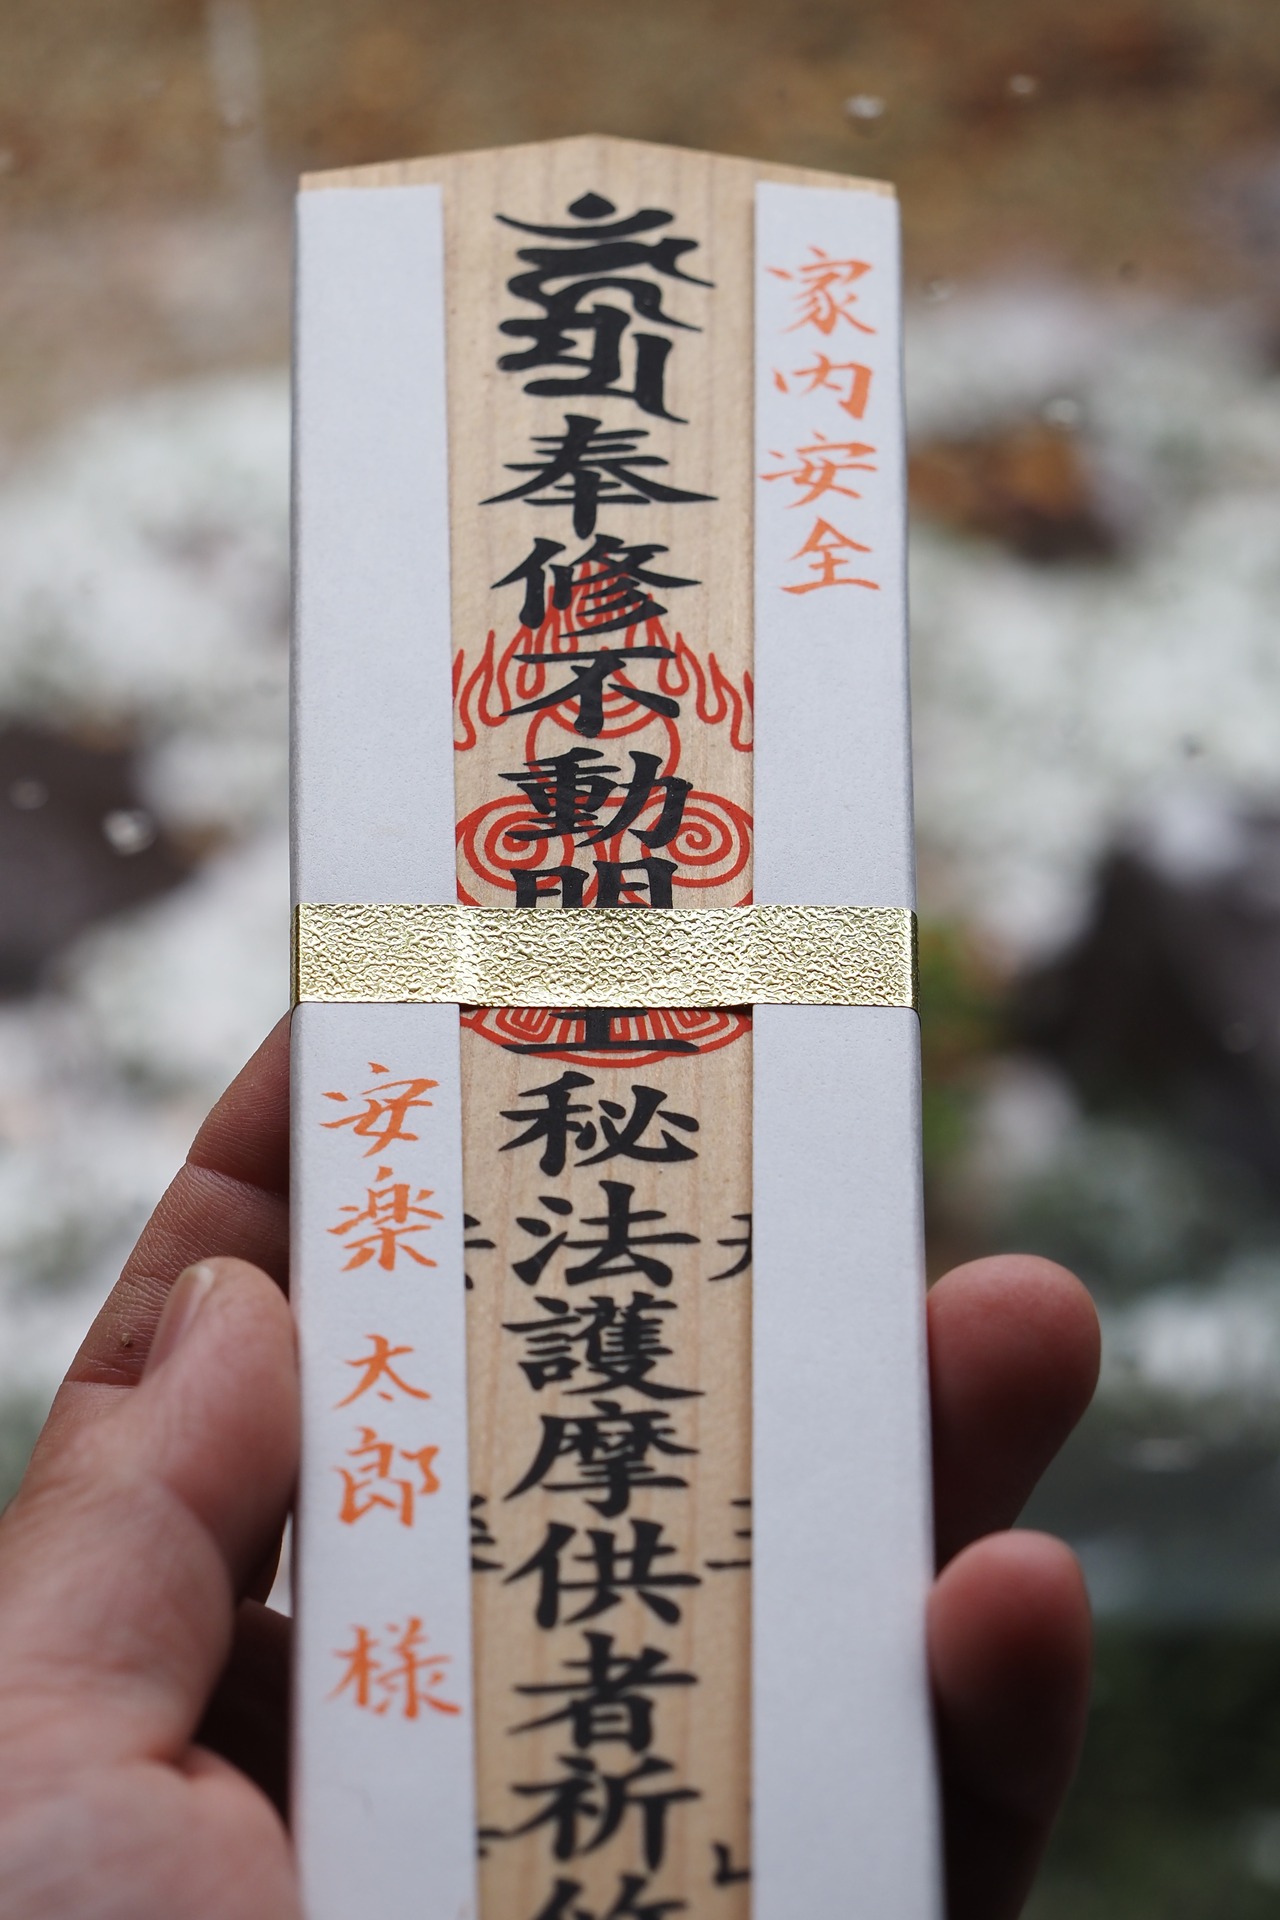 家内安全
奉修不動明王秘法護摩供者祈
安楽 太郎 様